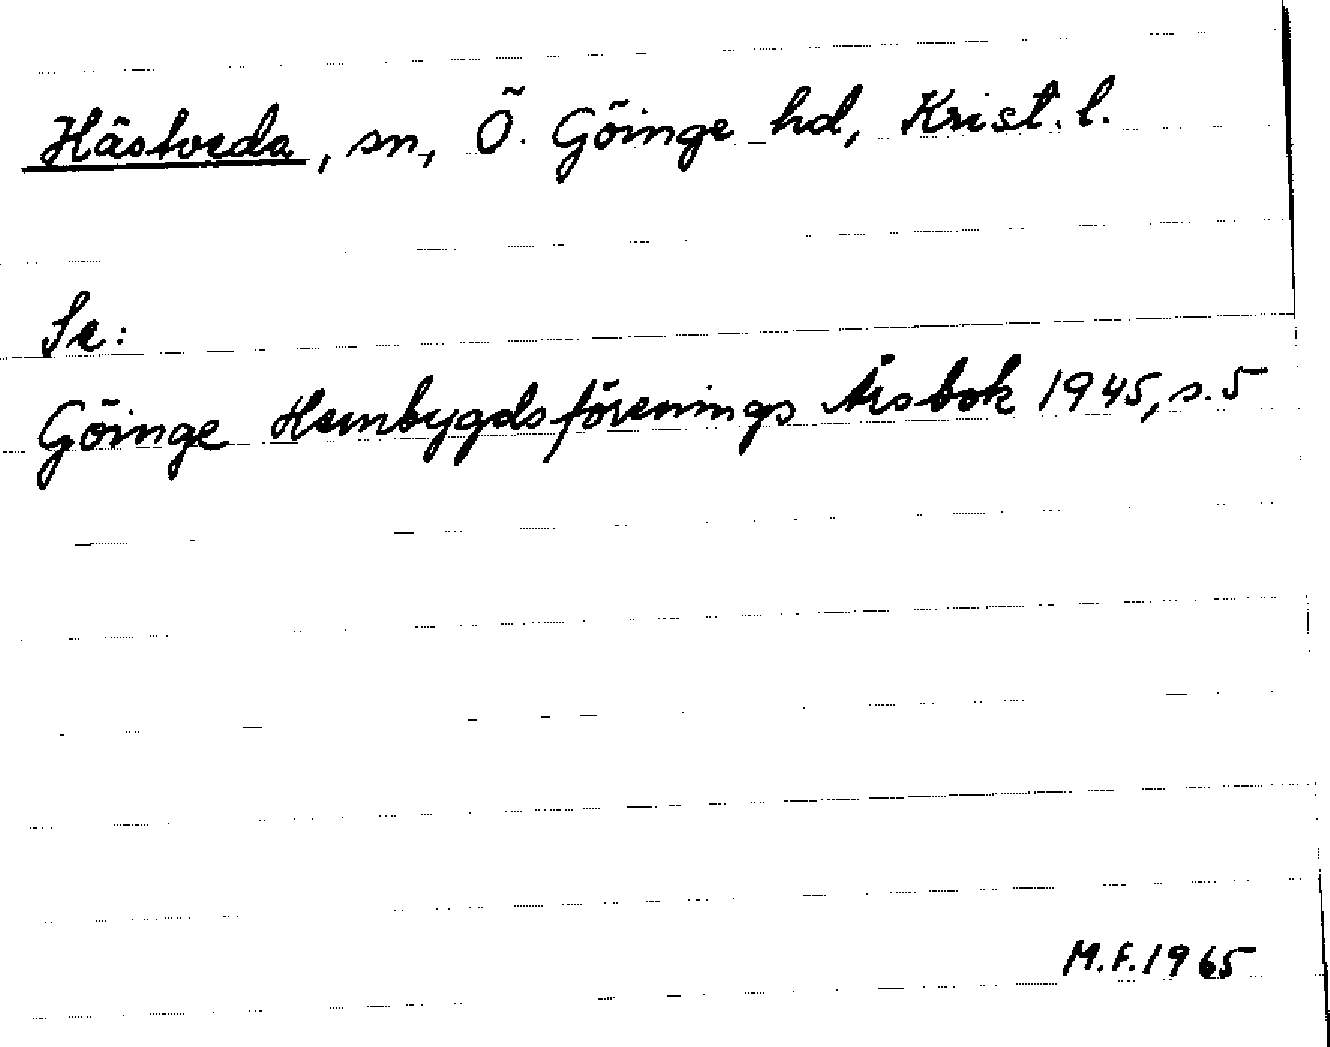 Hästveda, sn, Ö. Göinge hd, Krist. l.
Se:
Göinge Hembygdsförenings Årsbok 1945, s. 5
M.F. 1965